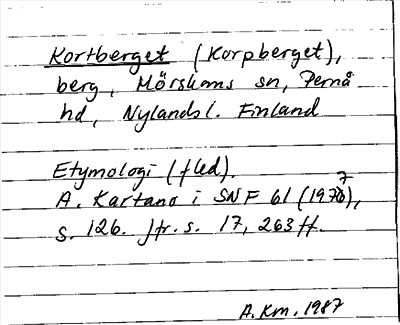 Kortberget (Korpberget),
berg, Mörskoms sn, Pernå
hd, Nylandsl. Finland
Etymologi (fled).
A. Kartano i SNF 61 (1977),
s. 126. Jfr. s. 17, 263 ff.
A. Km. 1987